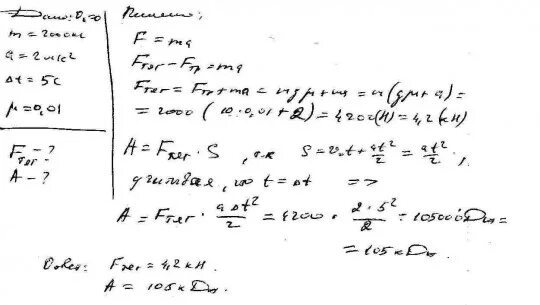 Дано: v₀=0
m = 2000кг
a = 2м/с²
Δt = 5с
μ = 0,01
Fтяг - ?
A - ?
Решение:
F = ma
Fтяг - Fтр = ma
Fтяг = Fтр + ma = mgμ + ma = m(gμ + a) =
= 2000 (10·0,01 + 2) = 4200(Н) = 4,2(кН)
A = Fтяг · S , т.к S = v₀t + at²/2 = at²/2 ,
учитывая, что t = Δt =>
A = Fтяг · aΔt²/2 = 4200 · 2·5²/2 = 105000Дж =
= 105кДж
Ответ: Fтяг = 4,2кН.
A = 105кДж.